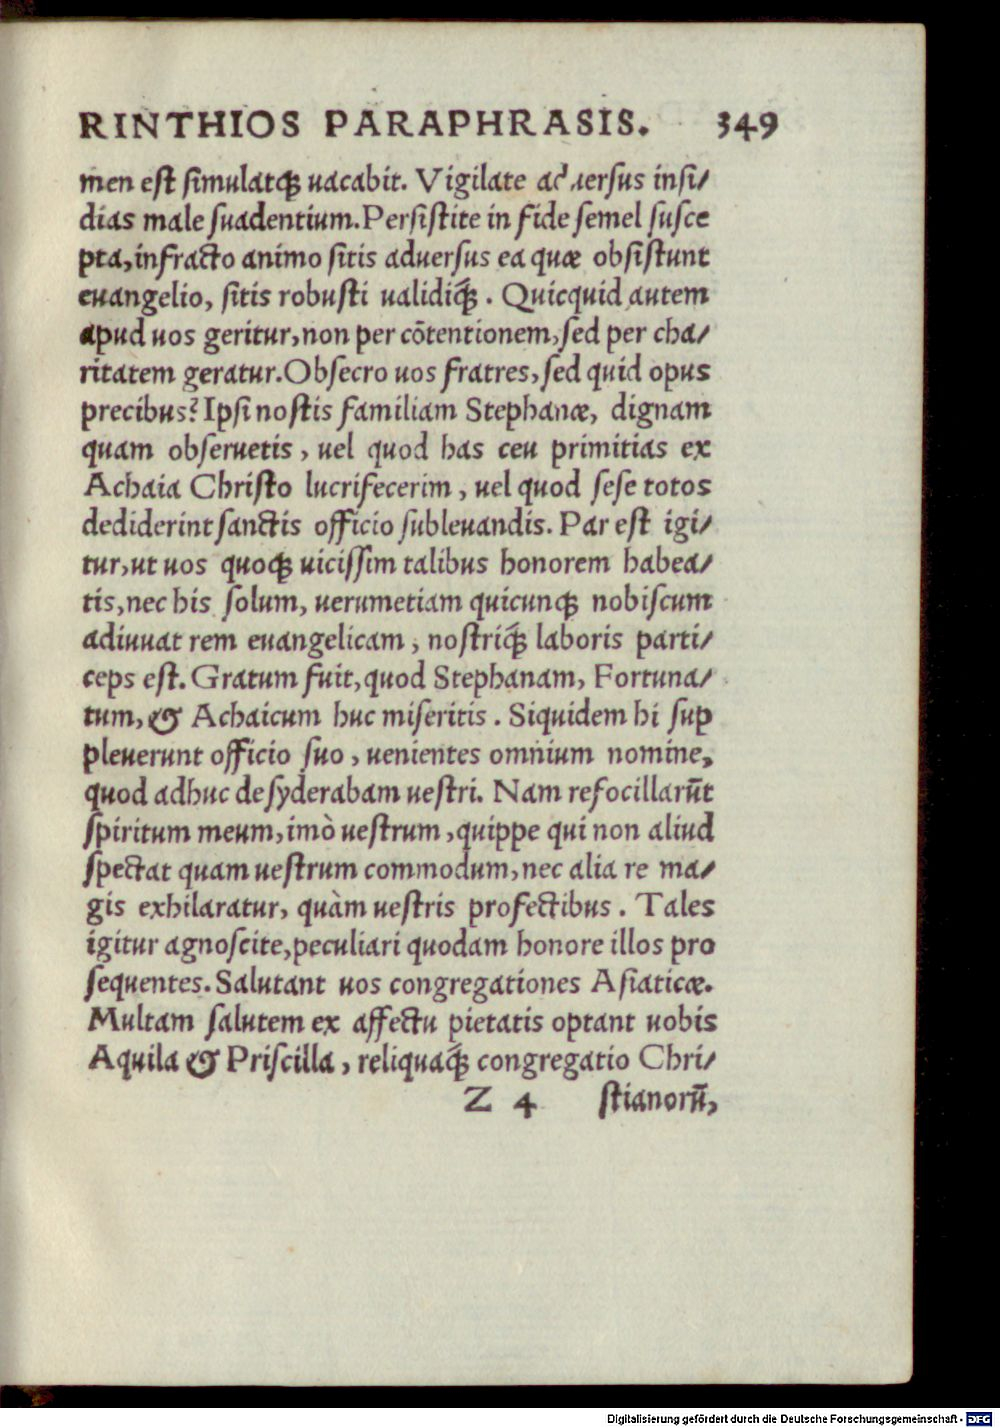 RINTHIOS PARAPHRASIS. 349
men est simulatq́ꝫ uacabit. Vigilate aduersus insi/
dias male suadentium. Persistite in fide semel susce
pta, infracto animo sitis aduersus ea quæ obsistunt
euangelio, sitis robusti ualidiq́ꝫ. Quicquid autem
apud uos geritur, non per cõtentionem, sed per cha/
ritatem geratur. Obsecro uos fratres, sed quid opus
precibus? Ipsi nostis familiam Stephanæ, dignam
quam obseruetis, uel quod has ceu primitias ex
Achaia Christo lucrifecerim, uel quod sese totos
dediderint sanctis officio subleuandis. Par est igi/
tur, ut uos quoqꝫ uicissim talibus honorem habea/
tis, nec his solum, uerumetiam quicunqꝫ nobiscum
adiuuat rem euangelicam, nostriq́ꝫ laboris parti/
ceps est. Gratum fuit, quod Stephanam, Fortuna/
tum, & Achaicum huc miseritis. Siquidem hi sup
pleuerunt officio suo, uenientes omnium nomine,
quod adhuc desyderabam uestri. Nam refocillarūt
spiritum meum, imò uestrum, quippe qui non aliud
spectat quam uestrum commodum, nec alia re ma/
gis exhilaratur, quàm uestris profectibus. Tales
igitur agnoscite, peculiari quodam honore illos pro
sequentes. Salutant uos congregationes Asiaticæ.
Multam salutem ex affectu pietatis optant uobis
Aquila & Priscilla, reliquaq́ꝫ congregatio Chri/
Z 4 stianorū,
Digitalisierung gefördert durch die Deutsche Forschungsgemeinschaft - DFG